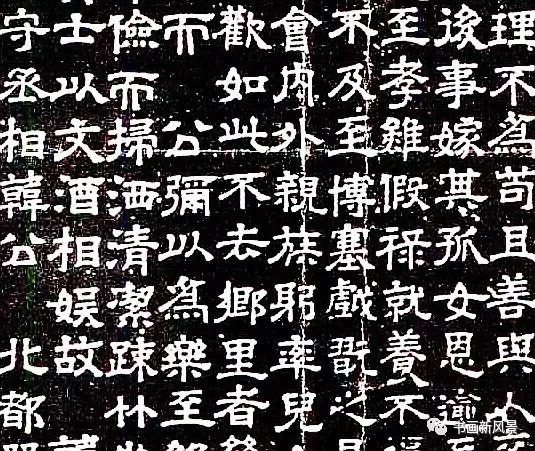 理不為苟且善與人
後事嫁其孤女恩逾
至孝雖假祿就養不
不及至博塞戲翫之
會內外親族躬率兒
歡如此不去鄉里者
而 公彌以為樂至
儉而掃洒清潔疎朴
士以文酒相娛故
守丞相韓公 北都
书画新风景